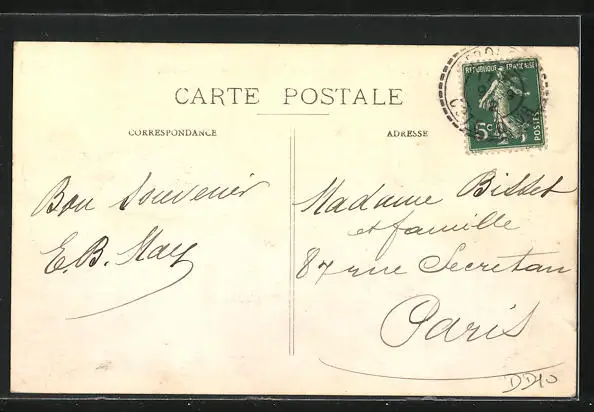 CARTE POSTALE
CORRESPONDANCE
ADRESSE
REPUBLIQUE FRANÇAISE
5c
POSTES
Bon Souvenir
E.B. May
Madame Bisset
et famille
87 rue Secretan
Paris
DD10